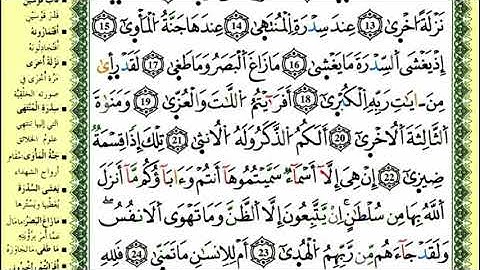 نَزْلَةً أُخْرَىٰ ﴿13﴾ عِندَ سِدْرَةِ الْمُنتَهَىٰ ﴿14﴾ عِندَهَا جَنَّةُ الْمَأْوَىٰ ﴿15﴾
إِذْ يَغْشَى السِّدْرَةَ مَا يَغْشَىٰ ﴿16﴾ مَا زَاغَ الْبَصَرُ وَمَا طَغَىٰ ﴿17﴾ لَقَدْ رَأَىٰ
مِنْ آيَاتِ رَبِّهِ الْكُبْرَىٰ ﴿18﴾ أَفَرَأَيْتُمُ اللَّاتَ وَالْعُزَّىٰ ﴿19﴾ وَمَنَوٰةَ
الثَّالِثَةَ الْأُخْرَىٰ ﴿20﴾ أَلَكُمُ الذَّكَرُ وَلَهُ الْأُنثَىٰ ﴿21﴾ تِلْكَ إِذًا قِسْمَةٌ
ضِيزَىٰ ﴿22﴾ إِنْ هِيَ إِلَّا أَسْمَاءٌ سَمَّيْتُمُوهَا أَنتُمْ وَءَابَاؤُكُم مَّا أَنزَلَ
اللَّهُ بِهَا مِن سُلْطَانٍ إِن يَتَّبِعُونَ إِلَّا الظَّنَّ وَمَا تَهْوَى الْأَنفُسُ
وَلَقَدْ جَاءَهُم مِّن رَّبِّهِمُ الْهُدَىٰ ﴿23﴾ أَمْ لِلْإِنسَانِ مَا تَمَنَّىٰ ﴿24﴾ فَلِلَّهِ
قَدْرَ قَوْسَيْنِ
أَفَتُمَارُونَهُ
نَزْلَةً أُخْرَى
مَرَّةً أُخْرَى فِي
صورته الخلقية
سِدْرَةِ الْمُنتَهَى
التي إليها تنتهي
علوم الخلائق
جَنَّةُ الْمَأْوَى مقام
أرواح الشهداء
يَغْشَى السِّدْرَةَ
يغطيها ويسترها
مَا زَاغَ الْبَصَرُ ما مال
مَا طَغَى ما جاوزه